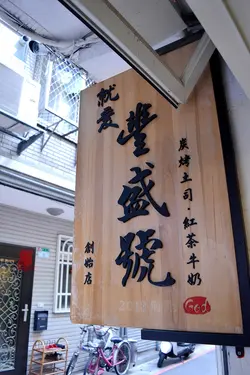 就愛
豐盛號
炭烤土司·紅茶牛奶
創始店